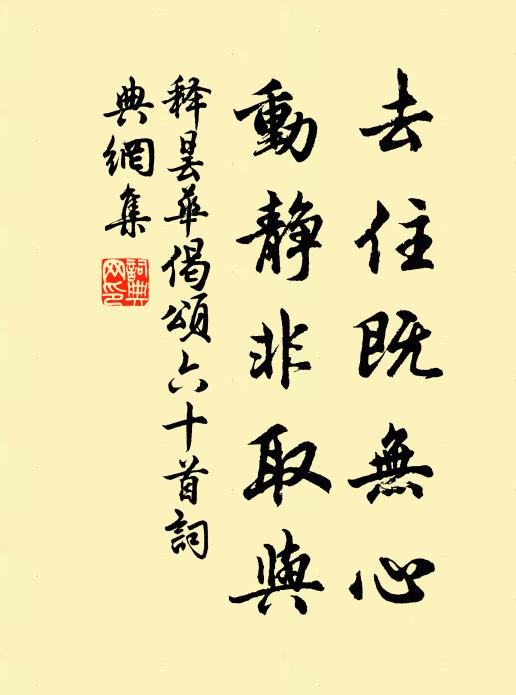 去住既無心
動靜非取與
释昙華偈頌六十首詞
典網集
詞典网印